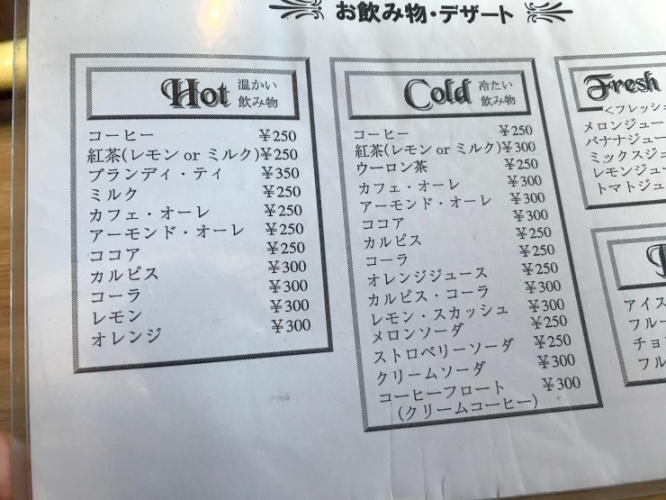 お飲み物・デザート
Hot 温かい
飲み物
コーヒー ¥250
紅茶(レモン or ミルク)¥250
ブランディ・ティ ¥350
ミルク ¥250
カフェ・オーレ ¥250
アーモンド・オーレ ¥250
ココア ¥250
カルピス ¥300
コーラ ¥300
レモン ¥300
オレンジ ¥300
Cold 冷たい
飲み物
コーヒー ¥250
紅茶(レモン or ミルク)¥300
ウーロン茶 ¥250
カフェ・オーレ ¥300
アーモンド・オーレ ¥300
ココア ¥300
カルピス ¥250
コーラ ¥250
オレンジジュース ¥250
カルピス・コーラ ¥300
レモン・スカッシュ ¥300
メロンソーダ ¥250
ストロベリーソーダ ¥250
クリームソーダ ¥300
コーヒーフロート ¥300
(クリームコーヒー)
Fresh
<フレッシ
メロンジュー
バナナジュー
ミックスジ
レモンジュー
トマトジュ
アイス
フルー
チョ
フル